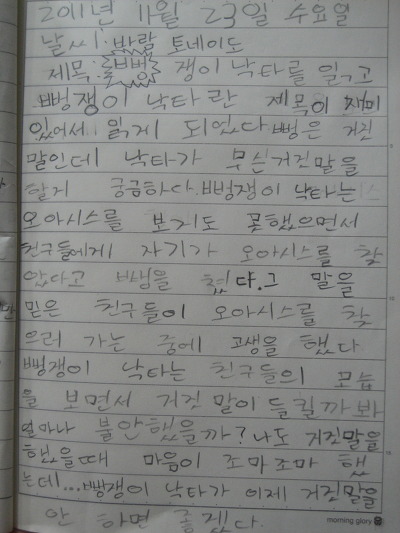 2011년 11월 23일 수요일
날씨: 바람 토네이도
제목: 뻥쟁이 낙타를 읽고
뻥쟁이 낙타란 제목이 재미
있어서 읽게 되었다 뻥은 거짓
말인데 낙타가 무슨거짓말을
할게 궁금하다. 뻥쟁이 낙타는
오아시스를 보지도 못했으면서
친구들에게 자기가 오아시스를 찾
았다고 뻥을 쳤다. 그 말을
믿은 친구들이 오아시스를 찾
으러 가는 중에 고생을 했다
뻥쟁이 낙타는 친구들의 모습
을 보면서 거짓말이 들킬까봐
얼마나 불안했을까? 나도 거짓말을
했을때 마음이 조마조마 했
는데... 뻥쟁이 낙타가 이제 거짓말을
안 하면 좋겠다.
morning glory